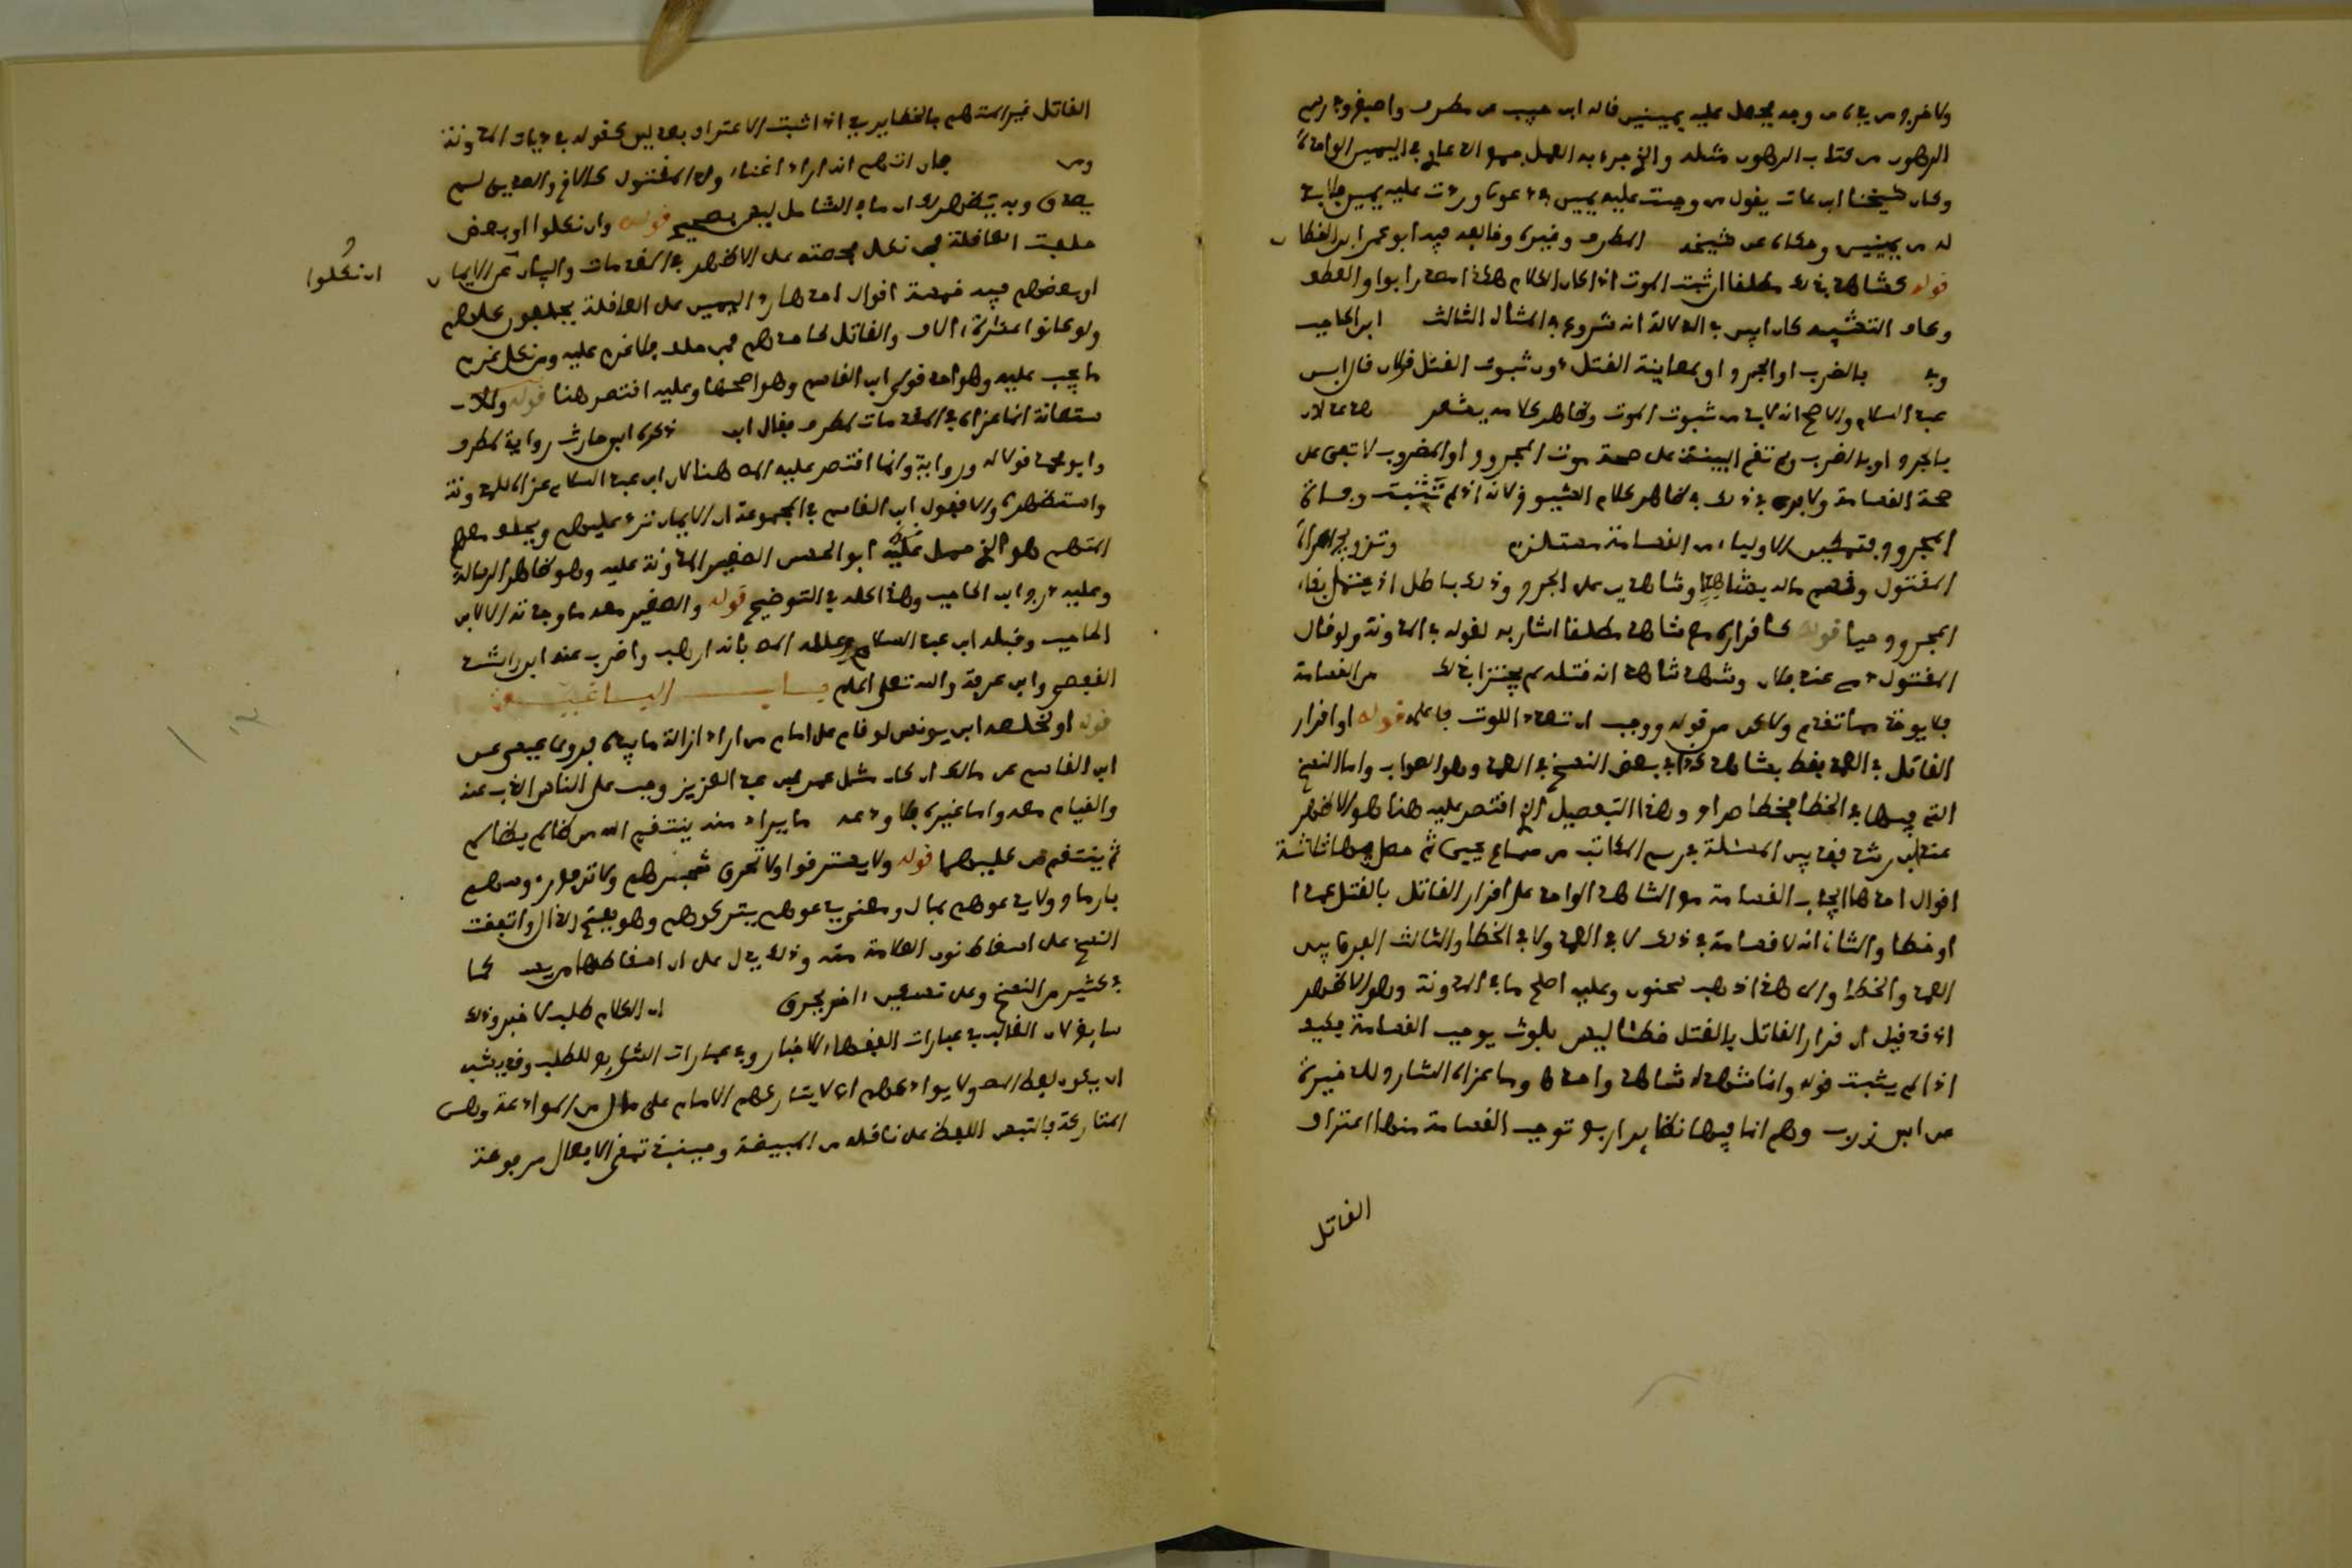 ولا خر وم وجد يحمل عليه يمينين قاله ابن حبيب عن مطرف واصبغ وفي رسم
الرهون من كتاب الرهون مثله والذي جرى به العمل جمع الدعاوي في اليمين الواحدة
وكان شيخنا ابن عات يقول من وجبت عليه يمين في دعوى وردت عليه يمين فلا بد
له من يمينين وحكاه عن شيخه المطرف وغيره وخالفه فيه ابو عمر ابن القطان
قوله كشاهد بذلك مطلقا ان ثبت الموت اذا كان الكلام هكذا مصدرا بواو العطف
وكاف التشبيه كان ابين في الدلالة انه شروع في المثال الثالث ابن الحاجب
بالضرب او الجرح او بمعاينة القتل دون ثبوت القتل قولان قال ابن
عبد السلام والاصح انه لابد من ثبوت الموت وظاهر كلامه يشعر
بالجرح او بالضرب ولم تقم البينة على صحة موت المجروح او المضروب لا تبقى على
صحة القسامة ولا بعد في ذلك في ظاهر كلام الشيوخ لانه اذا لم تثبت وفاة
المجروح فتمكين الاولياء من القسامة مستلزم وتزويج امراة
المقتول وقسم ماله بشاهد وشاهدين على الجرح وذلك باطل اذ يحتمل بقاء
المجروح حيا قوله كاقراره مع شاهد مطلقا اشار به لقوله في المدونة ولو قال
المقتول دمي عند فلان وشهد شاهد انه قتله لم يجتزا بذلك من القسامة
فلا يوخذ مما تقدم ولاكن من قوله ووجب ان تعدد اللوث فاعلمه قوله او اقرار
القاتل في العمد فقط بشاهد كذا في بعض النسخ في العمد وهو الصواب واما النسخ
التي فيها في الخطا فخطا صراح وهذا التفصيل الذي اقتصر عليه هنا هو الاظهر
عند ابن رشد فقد بين المسئلة في رسم المكاتب من سماع يحيى ثم حصل فيها ثلاثة
اقوال احدها ايجاب القسامة مع الشاهد الواحد على اقرار القاتل بالقتل عمدا
او خطا والثاني انه لا قسامة في ذلك لا في العمد ولا في الخطا والثالث الفرق بين
العمد والخطا والى هذا ذهب سحنون وعليه اصلح ما في المدونة وهو الاظهر
اذ قد قيل ان اقرار القاتل بالقتل خطئا ليس بلوث يوجب القسامة فكيف
اذا لم يثبت قوله وانما شهد به شاهد واحد وما عزاه الشارح للذخيرة
عن ابن زرب وهم انما فيها نظاير اربع توجب القسامة منها اعتراف
القاتل
القاتل غير المتهم بالخطا يريد اذا ثبت الاعتراف بعدلين كقوله في ديات المدونة
ومن فان اتهم انه اراد اغناء ولد المقتول كالاخ والصديق لم
يصدق وبه يتضح لك ان ما في الشامل ليس بصحيح قوله وان نكلوا او بعض
حلفت العاقلة فمن نكل فحصته على الاظهر في المقدمات والبيان اذا نكل عن الايمان
او بعضهم فيه خمسة اقوال احدها رد اليمين على العاقلة يحلفون كلهم
ولو كانوا عشرة الاف والقاتل كاحدهم فمن حلف فلا غرم عليه ومن نكل غرم
ما يجب عليه وهو احد قولي ابن القاسم وهو اصحها وعليه اقتصر هنا قوله ولا
استعانة انما عزاه في المقدمات لمطرف فقال ابن ذكره ابن حارث رواية لمطرف
وابو محمد قولا له ورواية وانما اقتصر عليه المص هنا لان ابن عبد السلام عزاه للمدونة
واستظهره والا فقول ابن القاسم في المجموعة ان الايمان ترد عليهم ويحلف معهم
المتهم هو الذي حمل عليه ابو الحسن الصغير المدونة عليه وهو ظاهر الرسالة
وعليه درج ابن الحاجب وهذا كله في التوضيح قوله والصغير معه ما وجدته الا لابن
الحاجب وقبله ابن عبد السلام وعلله المص بانه ارهب واضرب عنه ابن راشد
القفصي وابن عرفة والله تعلى اعلم باب الباغية
قوله او لخلعه ابن يونس لو قام على امام من اراد ازالة ما بيده فروى عيسى عن
ابن القاسم عن مالك ان كان مثل عمر بن عبد العزيز وجب على الناس الذب عنه
والقيام معه واما غيره فلا ودعه ما يراد منه ينتقم الله من ظالم بظالم
ثم ينتقم من كليهما قوله ولا يسترقوا ولا تحرق شجرهم ولا ترفع رءوسهم
بارماح ولا يدعوهم بمال ومعنى يدعوهم يتركوهم وهو بفتح الدال واتفقت
النسخ على اسقاط نون العلامة منه وذلك يدل على ان اسقاطها من يعد كما
في كثير من النسخ وعلى تصحيح اخر يجرى ان الكلام طلب لا خبر وذلك
سايغ لان الغالب في عبارات الفقهاء الاخبار وفي عبارات الشارع للطلب وقد يشبه
ان يكون لفظ المص ولا يوادعهم اي لا يتاركهم الامام على مال من الموادعة وهي
المتاركة فالتبس اللفظ على ناقله من المبيضة وحينئذ تبقى الافعال مرفوعة
ان نكلوا